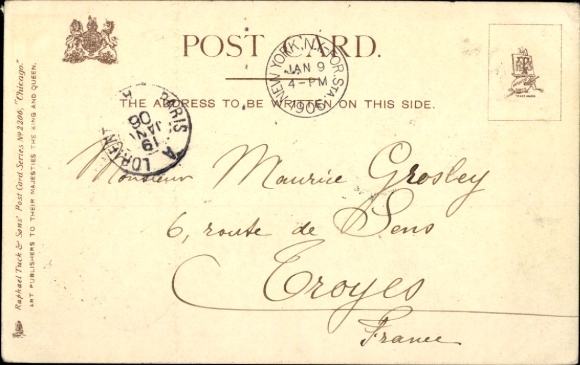 POST CARD.
THE ADDRESS TO BE WRITTEN ON THIS SIDE.
NEW YORK, N.Y. FOR. STA.
JAN 9
4-PM
1906
PARIS A LORIENT
19
JANV
06
Monsieur Maurice Grosley
6, route de Sens
Troyes
France
Raphael Tuck & Sons' Post Card Series Nº 2206, "Chicago."
ART PUBLISHERS TO THEIR MAJESTIES THE KING AND QUEEN.
TRADE MARK